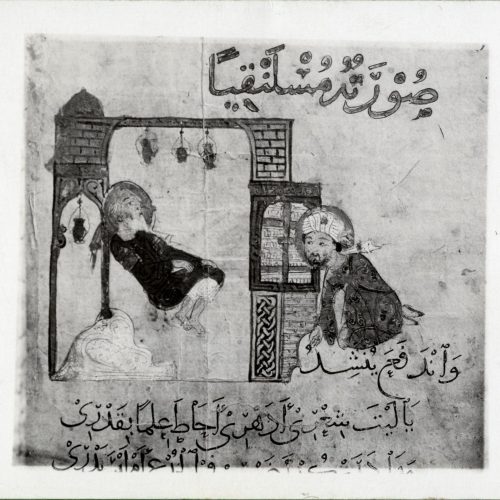 صُورَتُهُ مُسْتَلْقِيًا
وَانْدَفَعَ يُنْشِدُ
يَا لَيْتَ شِعْرِي أَدَهْرِي أَحَاطَ عِلْمًا بِقَدْرِي